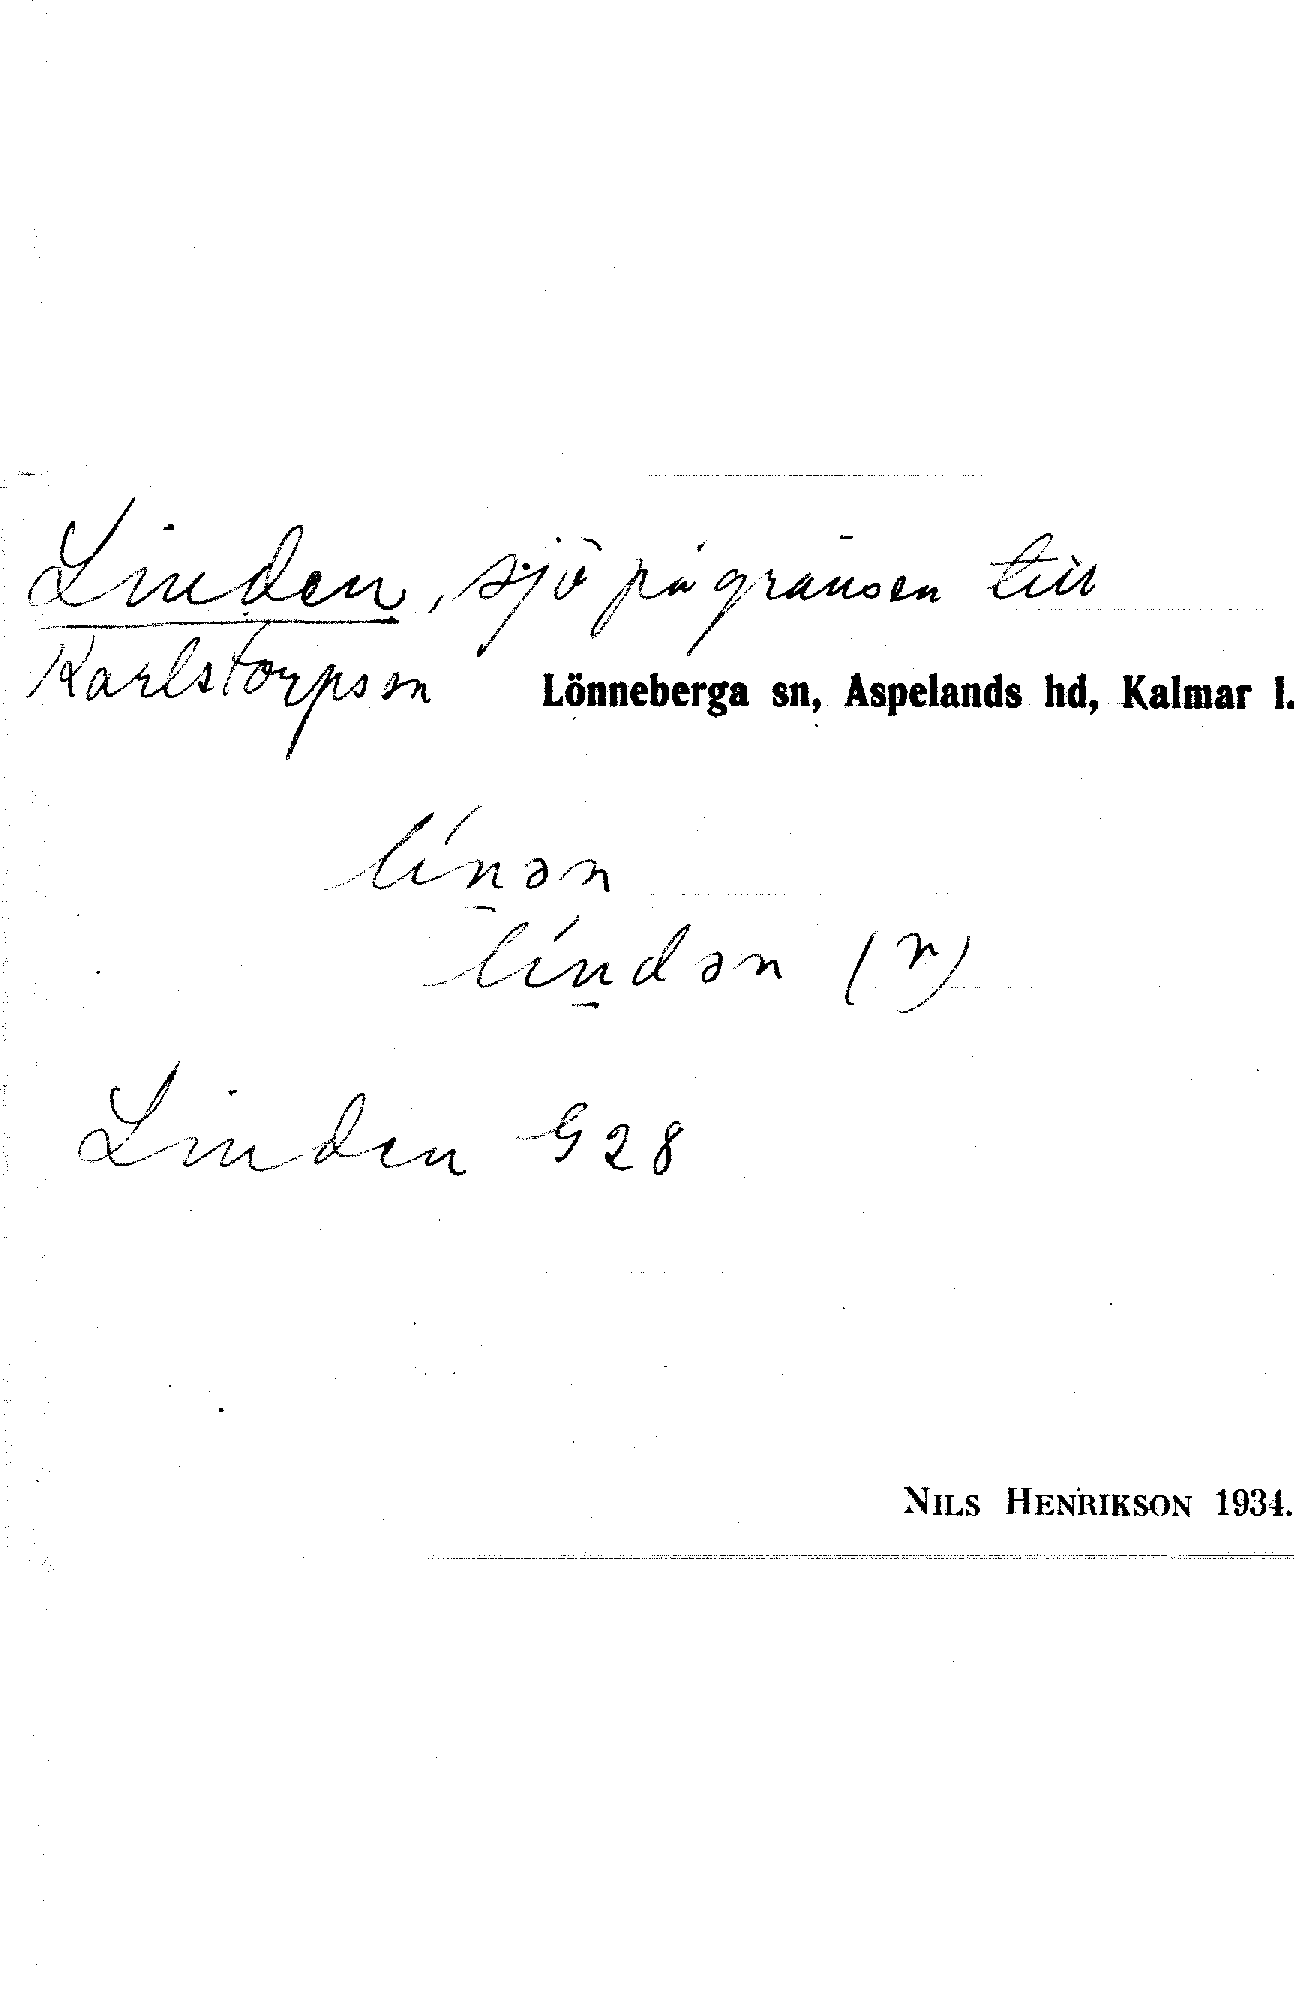 Linden, sjö på gränsen till
Karlstorpssn Lönneberga sn, Aspelands hd, Kalmar l.
lín̠ən
lín̠dən (r)
Linden G28
NILS HENRIKSON 1934.